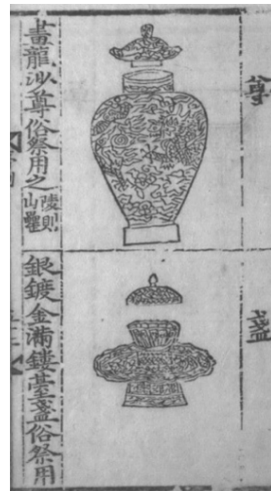 尊
畫龍沙尊俗祭用之
陵則
山罍
盞
銀鍍金滿鏤臺盞俗祭用